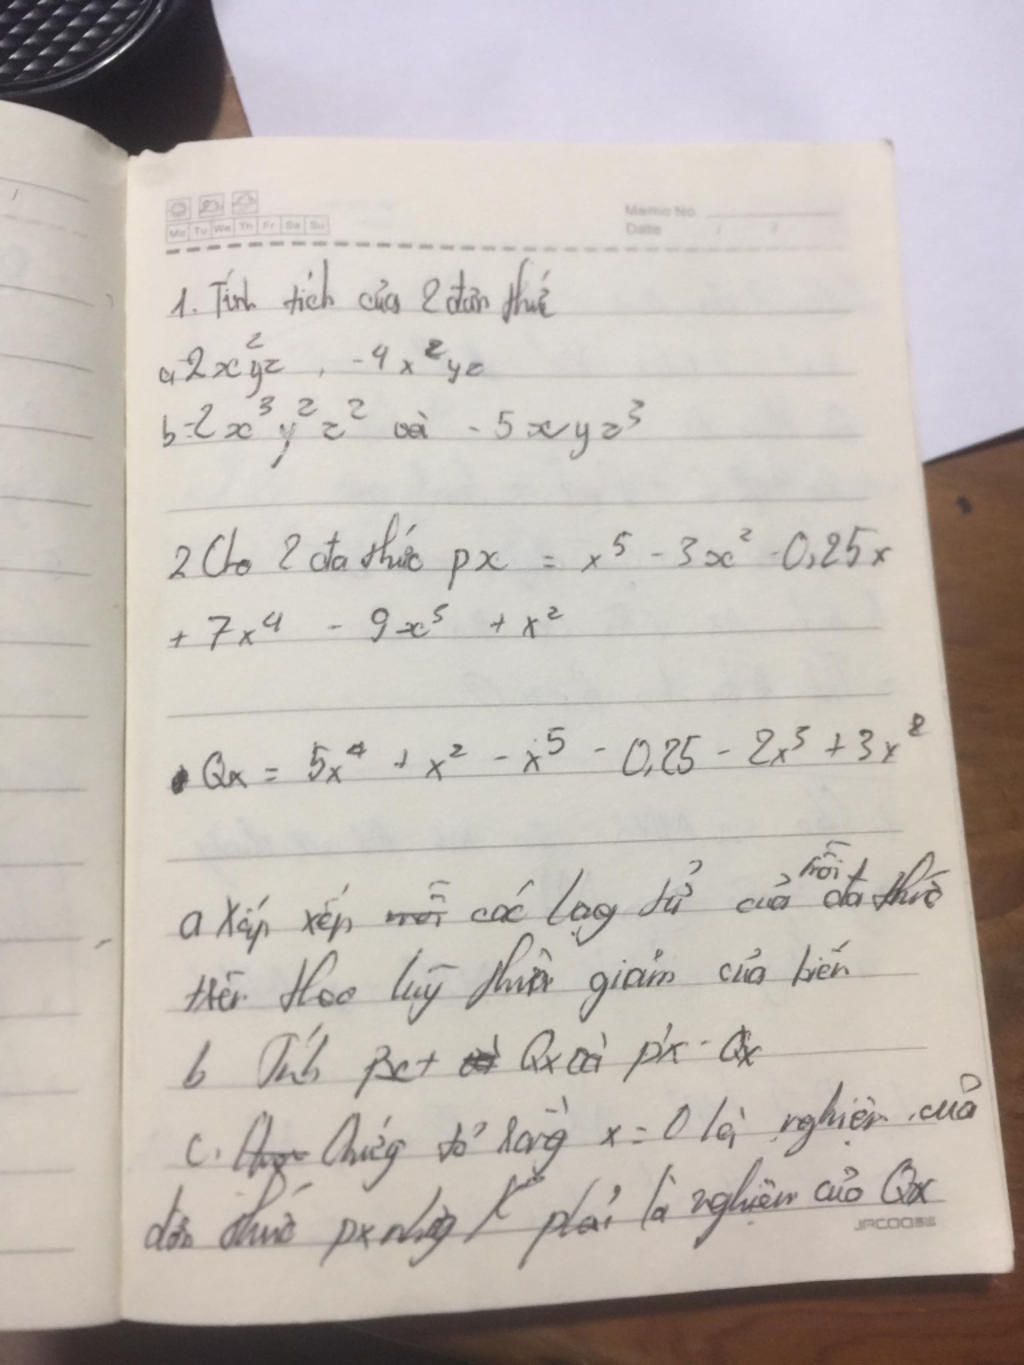 Mo Tu We Th Fr Sa Su
Memo No.
Date / /
1. Tính tích của 2 đơn thức
a, 2x²yz , -4x²yz
b -2x³y²z² và -5xyz³
2 Cho 2 đa thức px = x⁵ - 3x² - 0,25x
+ 7x⁴ - 9x⁵ + x²
Qx = 5x⁴ + x² - x⁵ - 0,25 - 2x³ + 3x²
a xắp xếp các hạng tử của mỗi đa thức
trên theo luỹ thừa giảm của biến
b Tính Px + Qx và px - Qx
c. Chứng tỏ rằng x = 0 là nghiệm của
đơn thức px nhưng k phải là nghiệm của Qx
JACOO